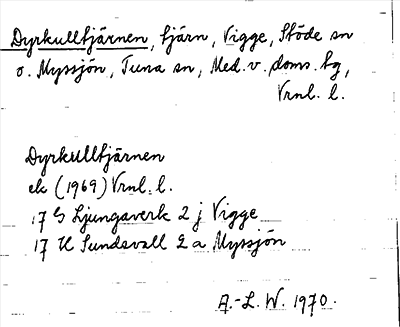 Dyrkulltjärnen, tjärn, Vigge, Stöde sn
o. Myssjön, Tuna sn, Med. v. doms. tg,
Vrnl. l.
Dyrkulltjärnen
ek (1969) Vrnl. l.
17 G Ljungaverk 2 j Vigge
17 H Sundsvall 2 a Myssjön
A.-L. W. 1970.